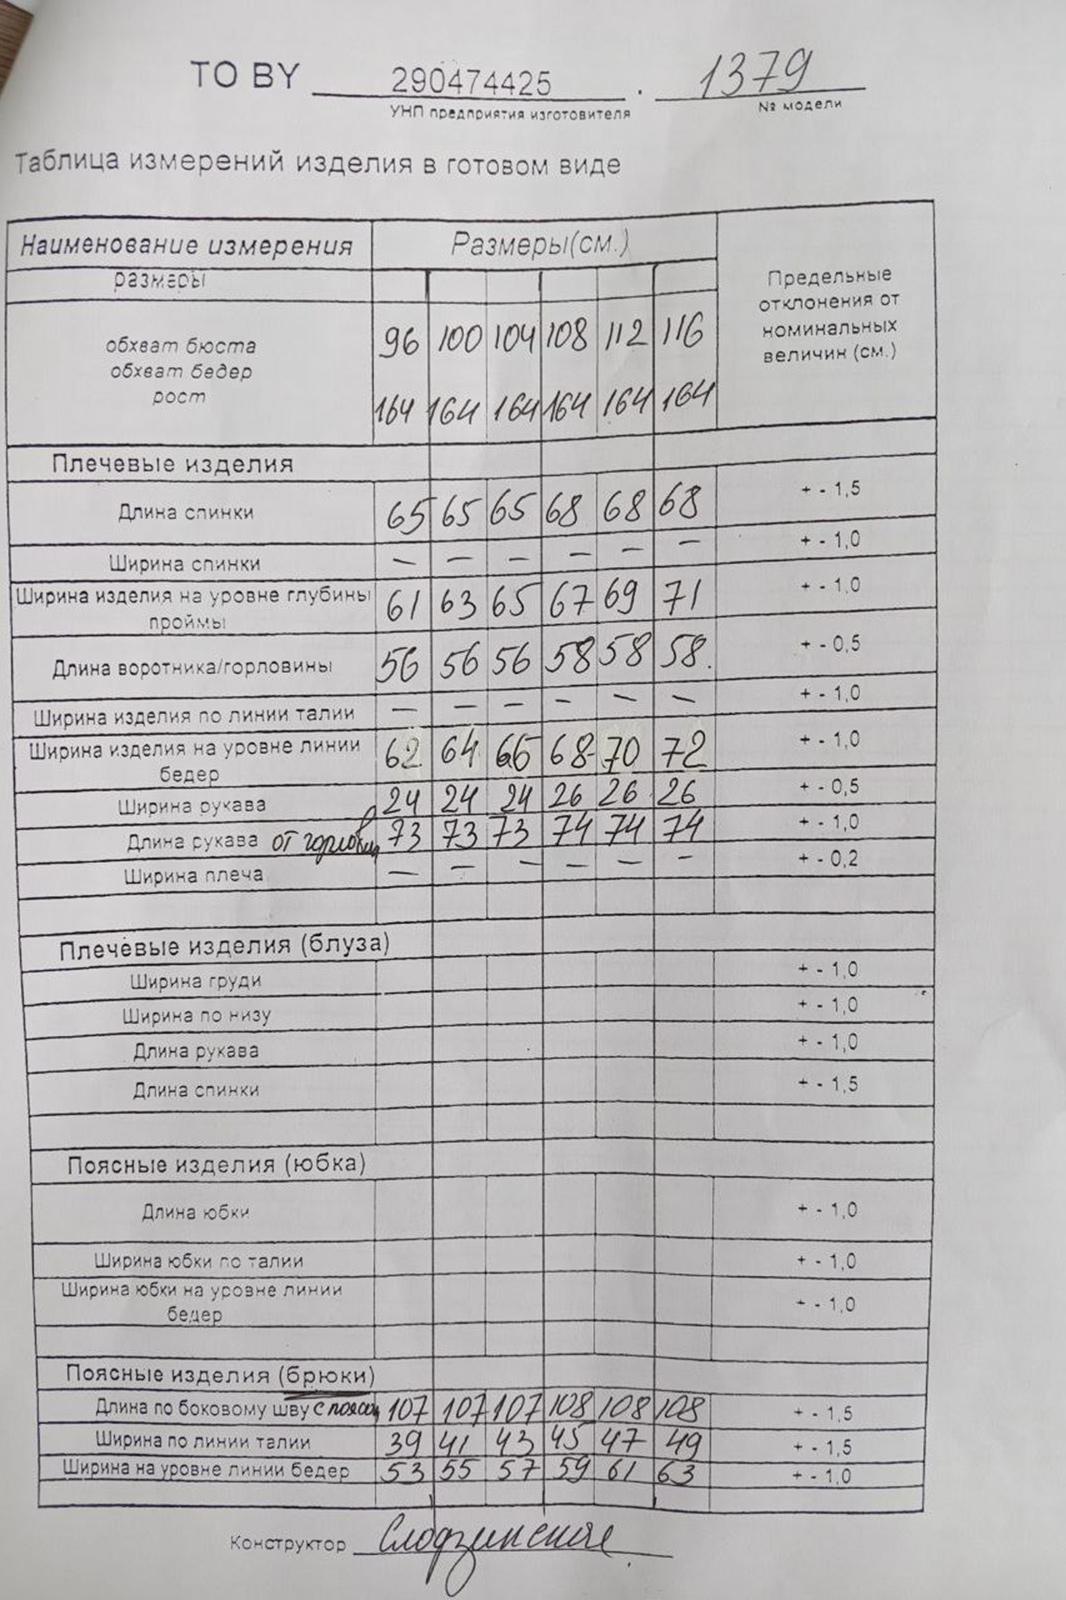 ТО BY 290474425 . 1379
УНП предприятия изготовителя № модели
Таблица измерений изделия в готовом виде
Наименование измерения Размеры(см.) Предельные отклонения от номинальных величин (см.)
размеры
обхват бюста 96 100 104 108 112 116
обхват бедер
рост 164 164 164 164 164 164
Плечевые изделия
Длина спинки 65 65 65 68 68 68 + - 1,5
Ширина спинки — — — — — — + - 1,0
Ширина изделия на уровне глубины проймы 61 63 65 67 69 71 + - 1,0
Длина воротника/горловины 56 56 56 58 58 58. + - 0,5
Ширина изделия по линии талии — — — — — — + - 1,0
Ширина изделия на уровне линии бедер 62 64 66 68 70 72 + - 1,0
Ширина рукава 24 24 24 26 26 26 + - 0,5
Длина рукава от горловины 73 73 73 74 74 74 + - 1,0
Ширина плеча — — — — — — + - 0,2
Плечевые изделия (блуза)
Ширина груди + - 1,0
Ширина по низу + - 1,0
Длина рукава + - 1,0
Длина спинки + - 1,5
Поясные изделия (юбка)
Длина юбки + - 1,0
Ширина юбки по талии + - 1,0
Ширина юбки на уровне линии бедер + - 1,0
Поясные изделия (брюки)
Длина по боковому шву с поясом 107 107 107 108 108 108 + - 1,5
Ширина по линии талии 39 41 43 45 47 49 + - 1,5
Ширина на уровне линии бедер 53 55 57 59 61 63 + - 1,0
Конструктор Слодзинская